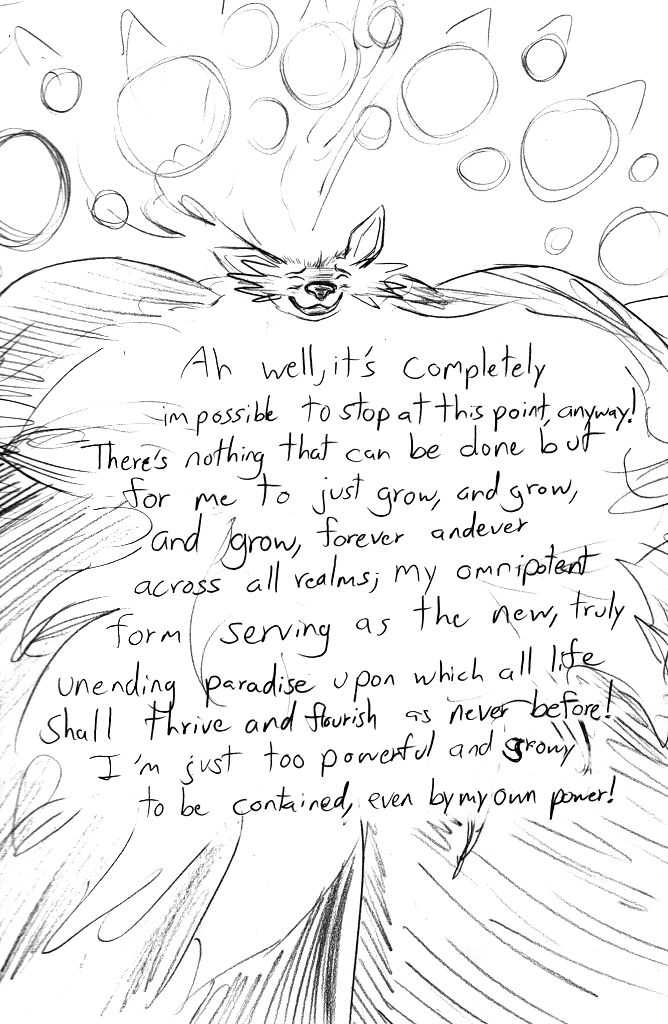 Ah well, it's completely
impossible to stop at this point, anyway!
There's nothing that can be done but
for me to just grow, and grow,
and grow, forever andever
across all realms; my omnipotent
form serving as the new, truly
unending paradise upon which all life
shall thrive and flourish as never before!
I'm just too powerful and growy
to be contained, even by my own power!